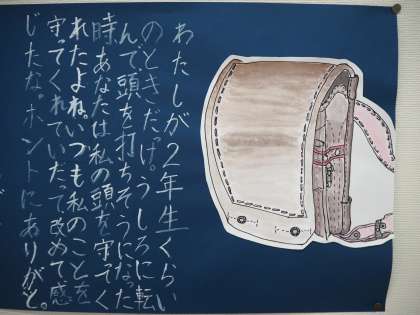 わたしが2年生くらい
のときだっけ。うしろに転
んで頭を打ちそうになった
時、あなたは私の頭を守ってく
れたよね。いつも私のことを
守ってくれていたって改めて感
じたな。ホントにありがと。